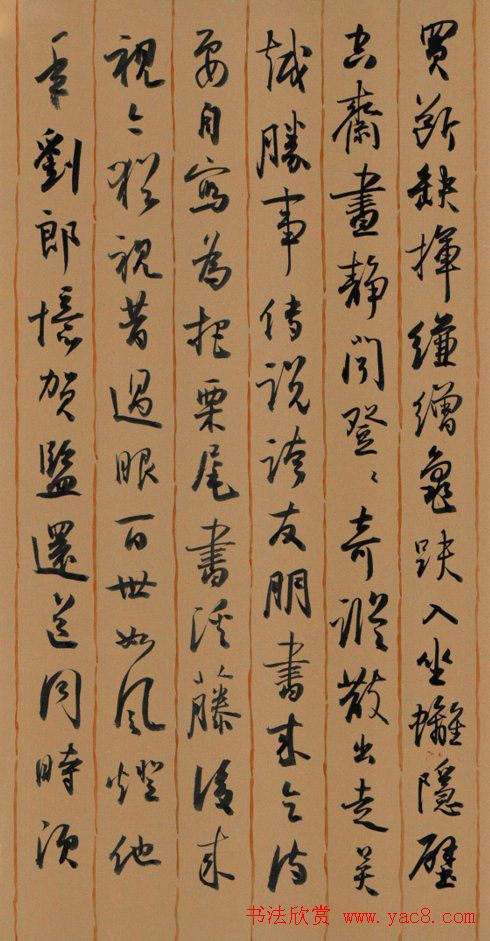 買斷缺揮縑繒龜趺入坐螭隱壁
空齋晝靜聞登々奇蹤散出走吳
越勝事傳說誇友朋書來乞詩
要自寫為把栗尾書溪藤後來
視今猶視昔過眼百世如風燈他
年劉郎憶賀監還道同時須
书法欣赏 www.yac8.com